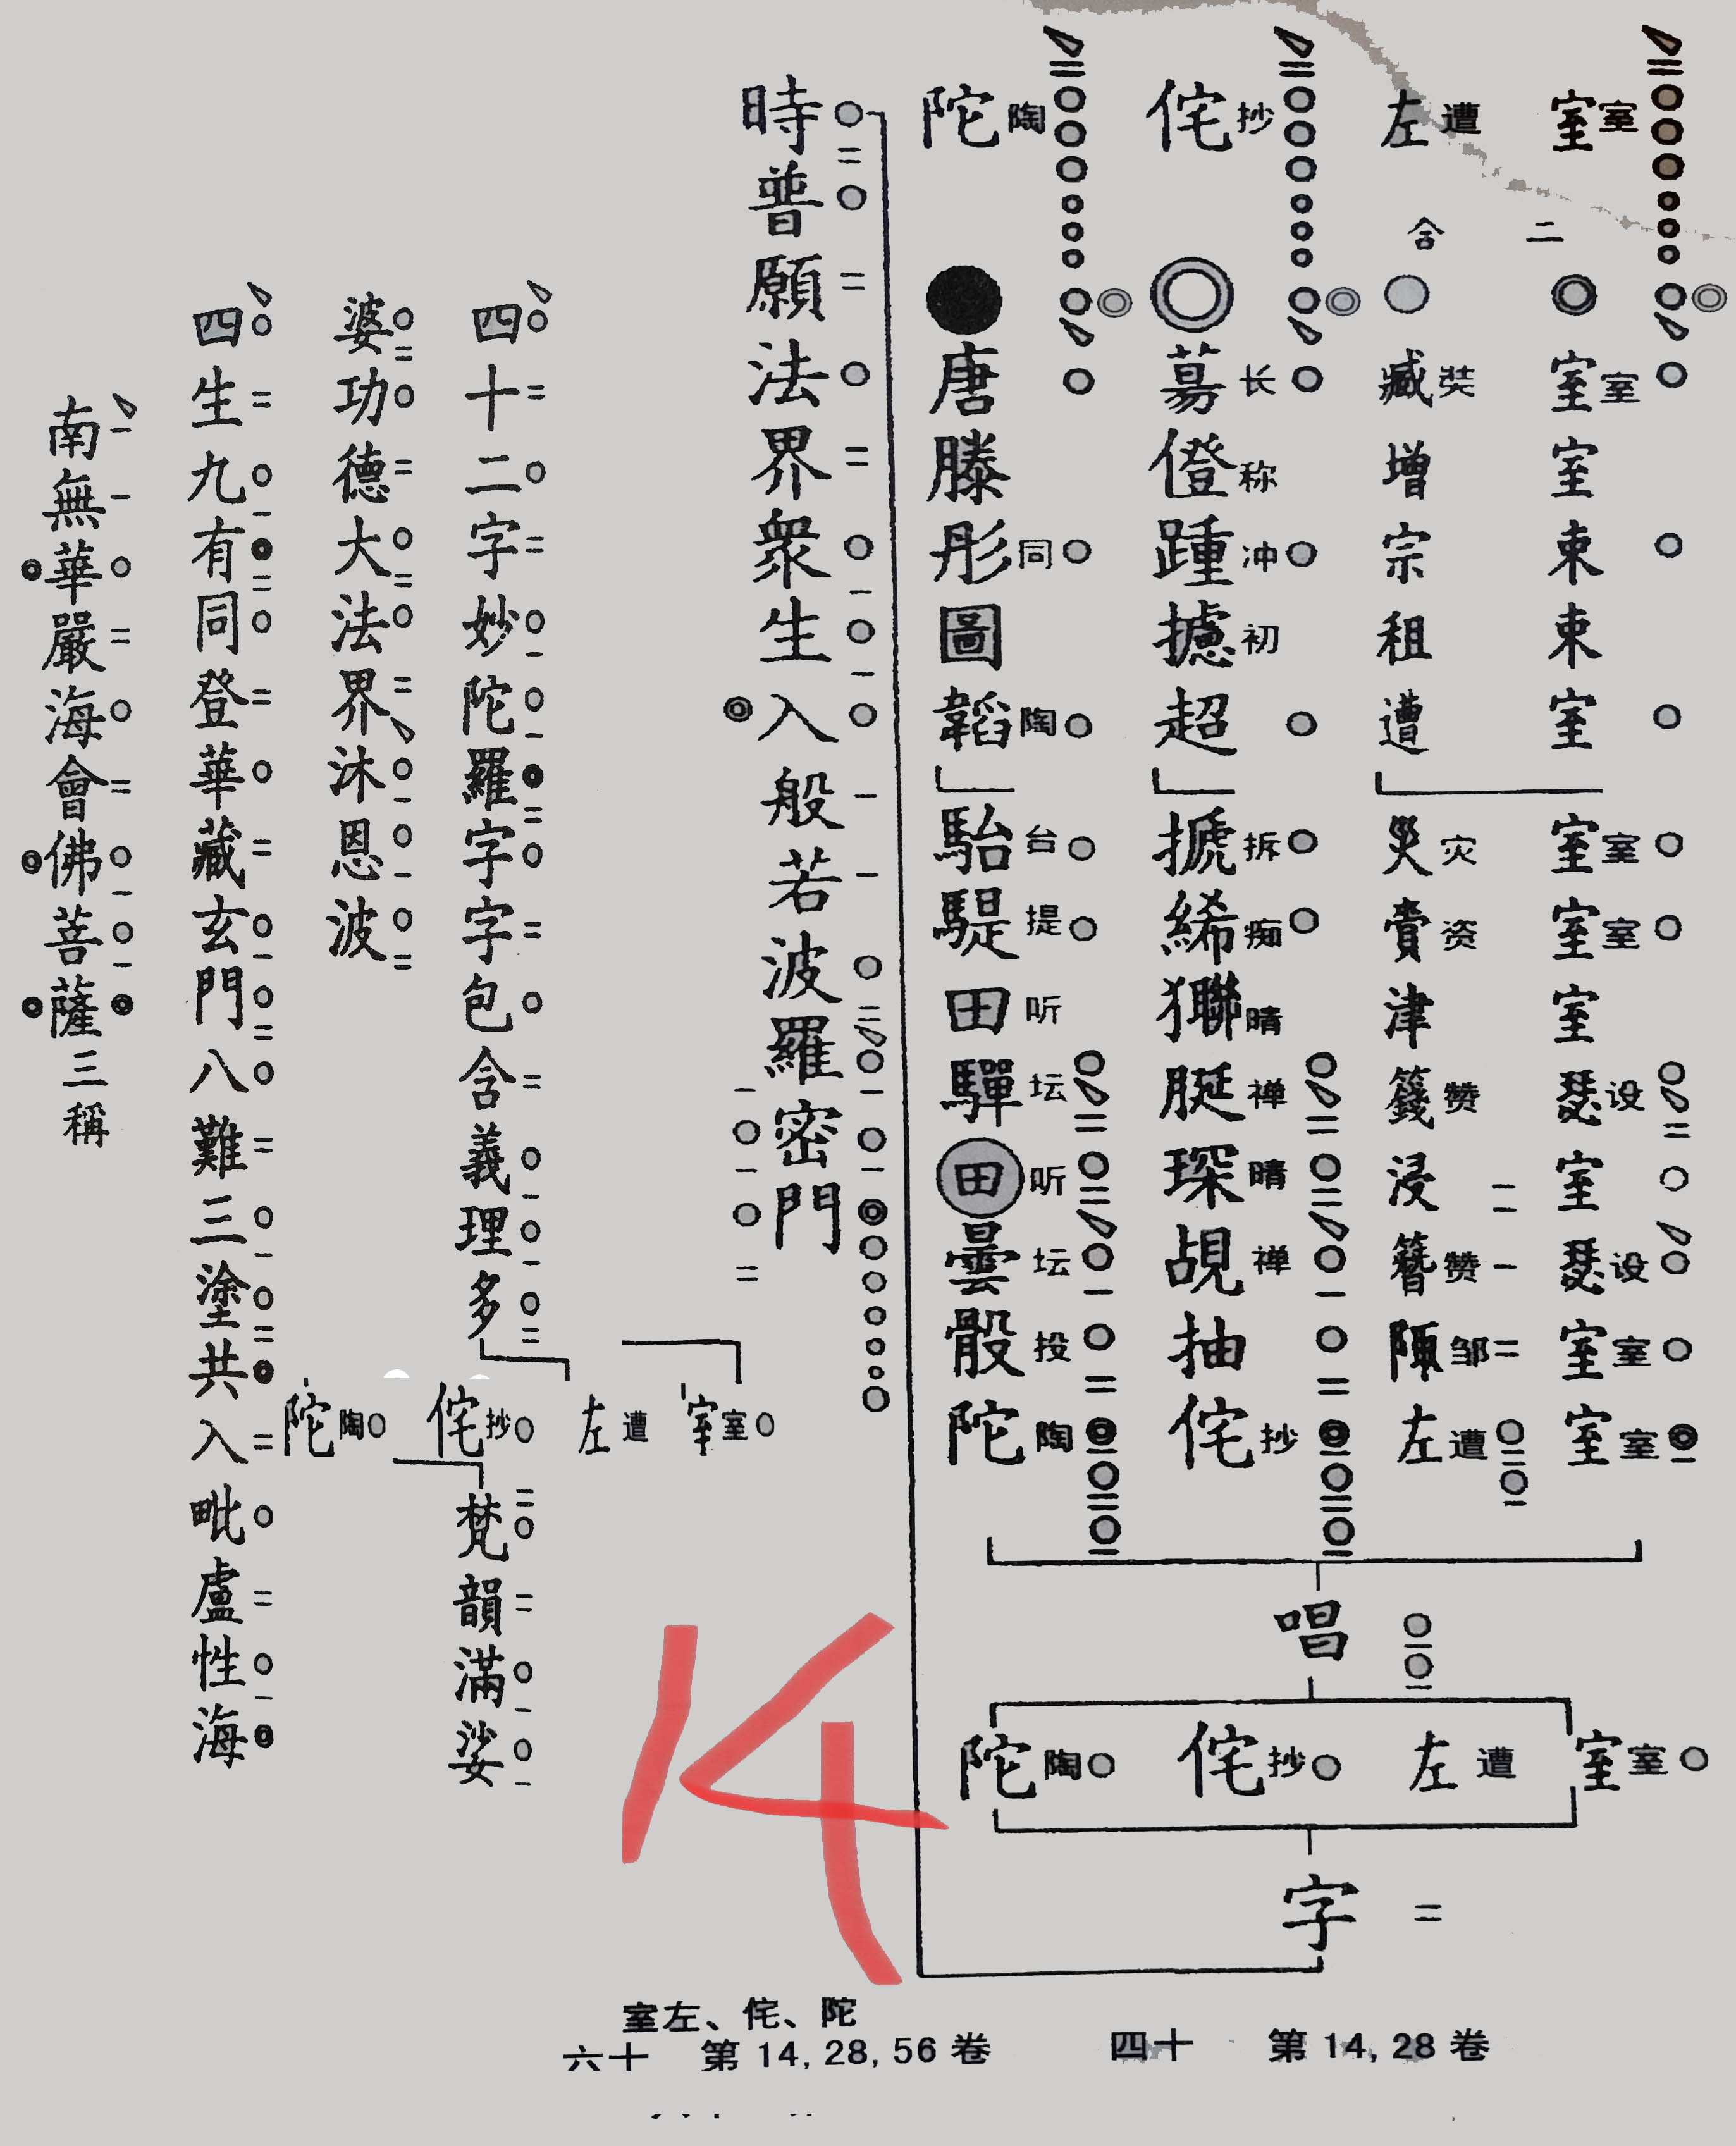 室室
二
室室
室
東
東
室
室室
室室
室
瑟设
室
瑟设
室室
室室
左遭
合
臧奘
增
宗
租
遭
災灾
賫资
津
籛赞
浸
簪赞
陬邹
左遭
侘抄
蕩长
僜称
踵冲
摅初
超
搋拆
絺痴
晴
脡禅
琛晴
觇禅
抽
侘抄
陀陶
唐
滕
彤同
圖
韜陶
駘台
騠提
田听
驒坛
田听
曇坛
骰投
陀陶
唱
室室
左遭
侘抄
陀陶
字
時普願法界衆生入般若波羅密門
四十二字妙陀羅字字包含義理多
室室
左遭
侘抄
陀陶
梵韻滿娑
婆功德大法界沐恩波
四生九有同登華藏玄門八難三塗共入毗盧性海
南無華嚴海會佛菩薩三稱
14
室左、侘、陀
六十 第 14, 28, 56 卷
四十 第 14, 28 卷